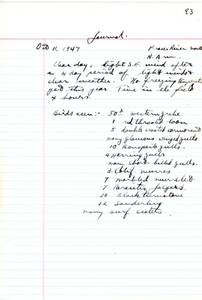 83
Journal
Oct 11, 1947
Clear day, light S.E. wind after
a 4 day period of light winds &
clear weather. No freezing temp
yet this year. Time in the field
4 hours.
Birds seen: 50+ western grebe
1 red throated loon
5 double crested cormorant
many glaucous winged gulls
10 Bonaparte gulls
4 Herring gulls
many short billed gulls
3 Calif. murres
7 marbled murrelet
7 Parasitic jaegers
20 black turnstone
12 Sanderling
many surf scoters